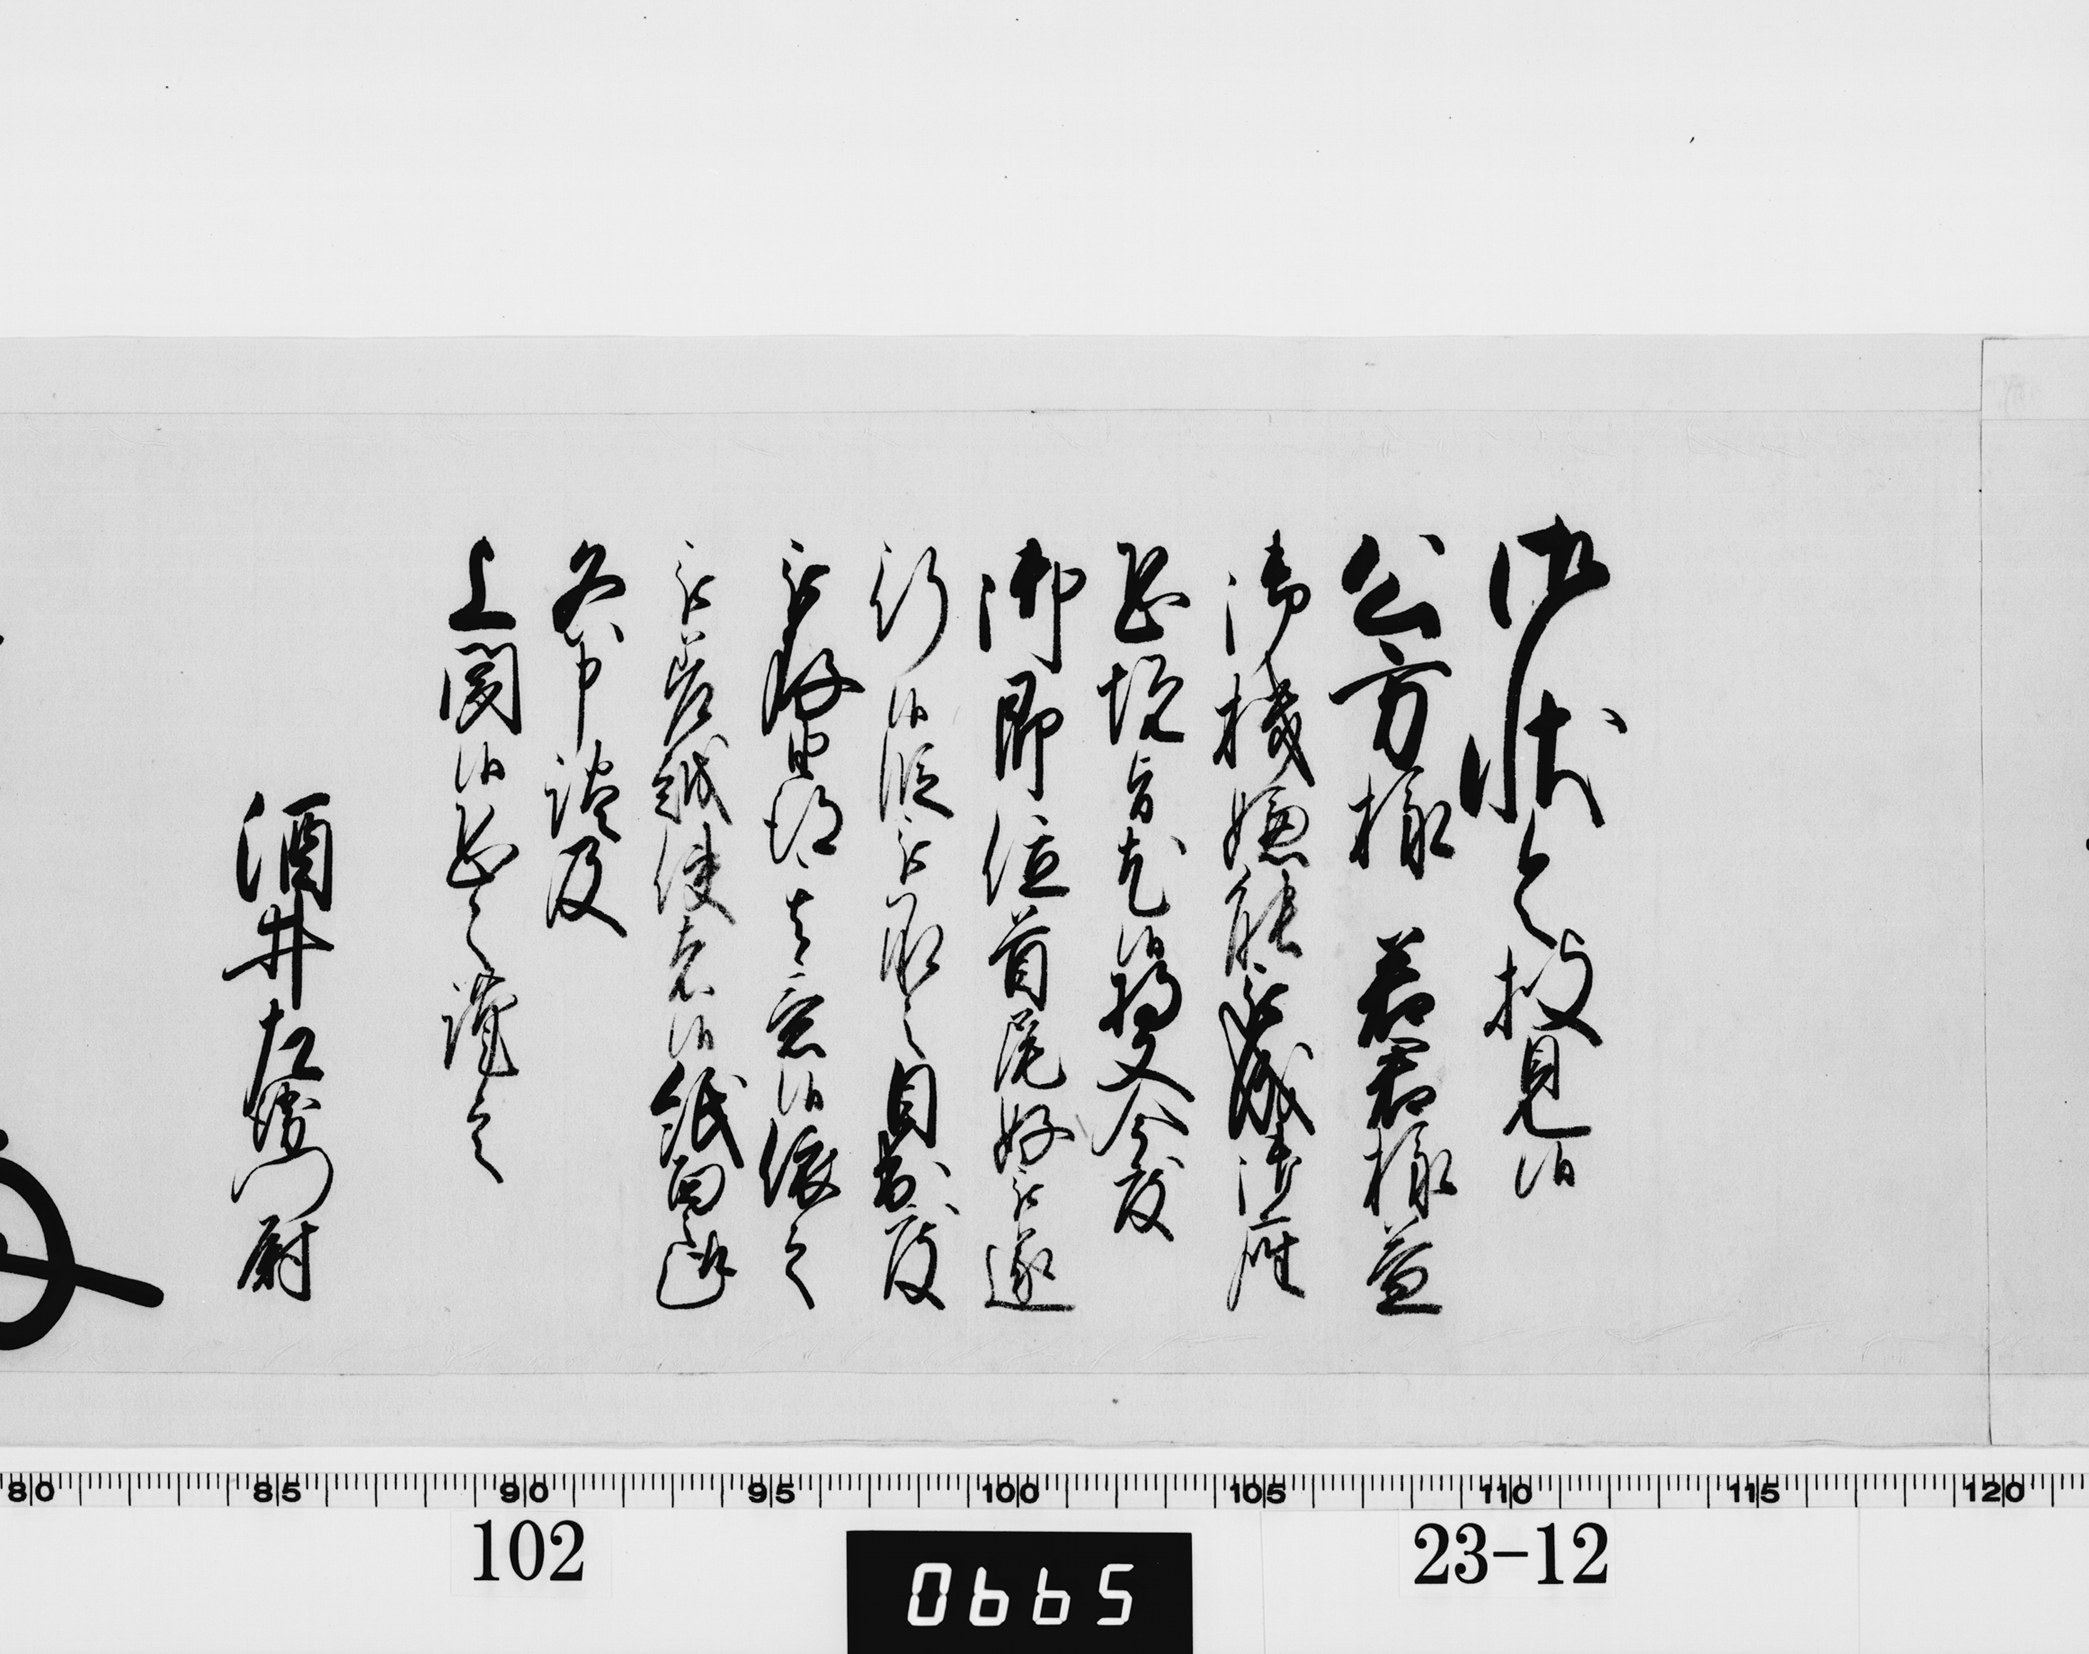 御状令披見候
公方様若君様益
御機嫌能被成御座
恐悦旨尤候将又今度
御即位首尾好被遂
行候段被承之目出度
被存由得其意候依之
以使者候紙面之趣
各申談及
上聞候恐々謹言
酒井左衛門尉
80 85 90 95 100 105 110 115 120
102
0665
23-12